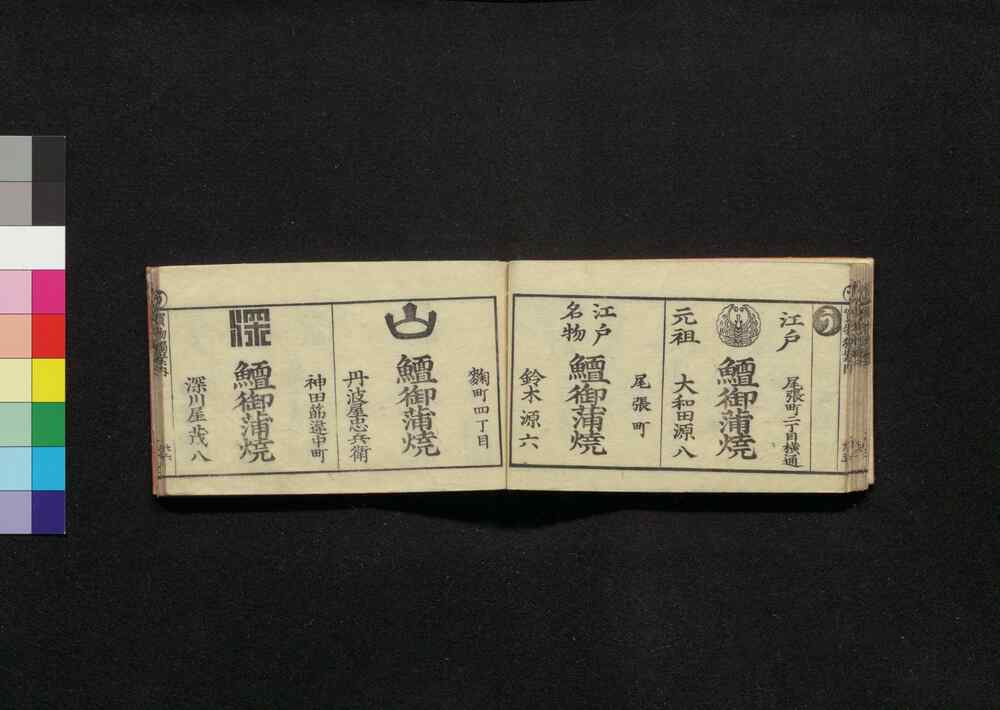 う
江戸
尾張町二丁目横通
鱣御蒲焼
元祖
大和田源八
尾張町
江戸
名物
鱣御蒲焼
鈴木源六
麹町四丁目
山
鱣御蒲焼
丹波屋忠兵衛
神田筋違中町
深
鱣御蒲焼
深川屋茂八